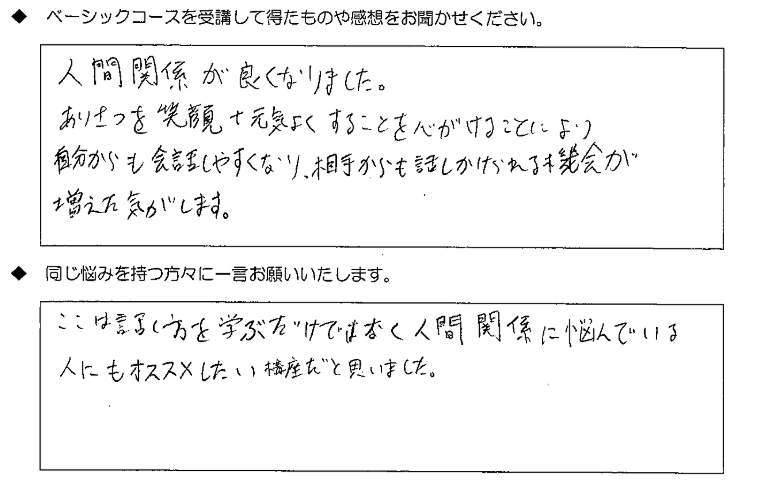 ◆ ベーシックコースを受講して得たものや感想をお聞かせください。
人間関係が良くなりました。
あいさつを笑顔+元気よくすることを心がけることにより
自分からも会話しやすくなり、相手からも話しかけられる機会が
増えた気がします。
◆ 同じ悩みを持つ方々に一言お願いいたします。
ここは話し方を学ぶだけではなく人間関係に悩んでいる
人にもオススメしたい講座だと思いました。